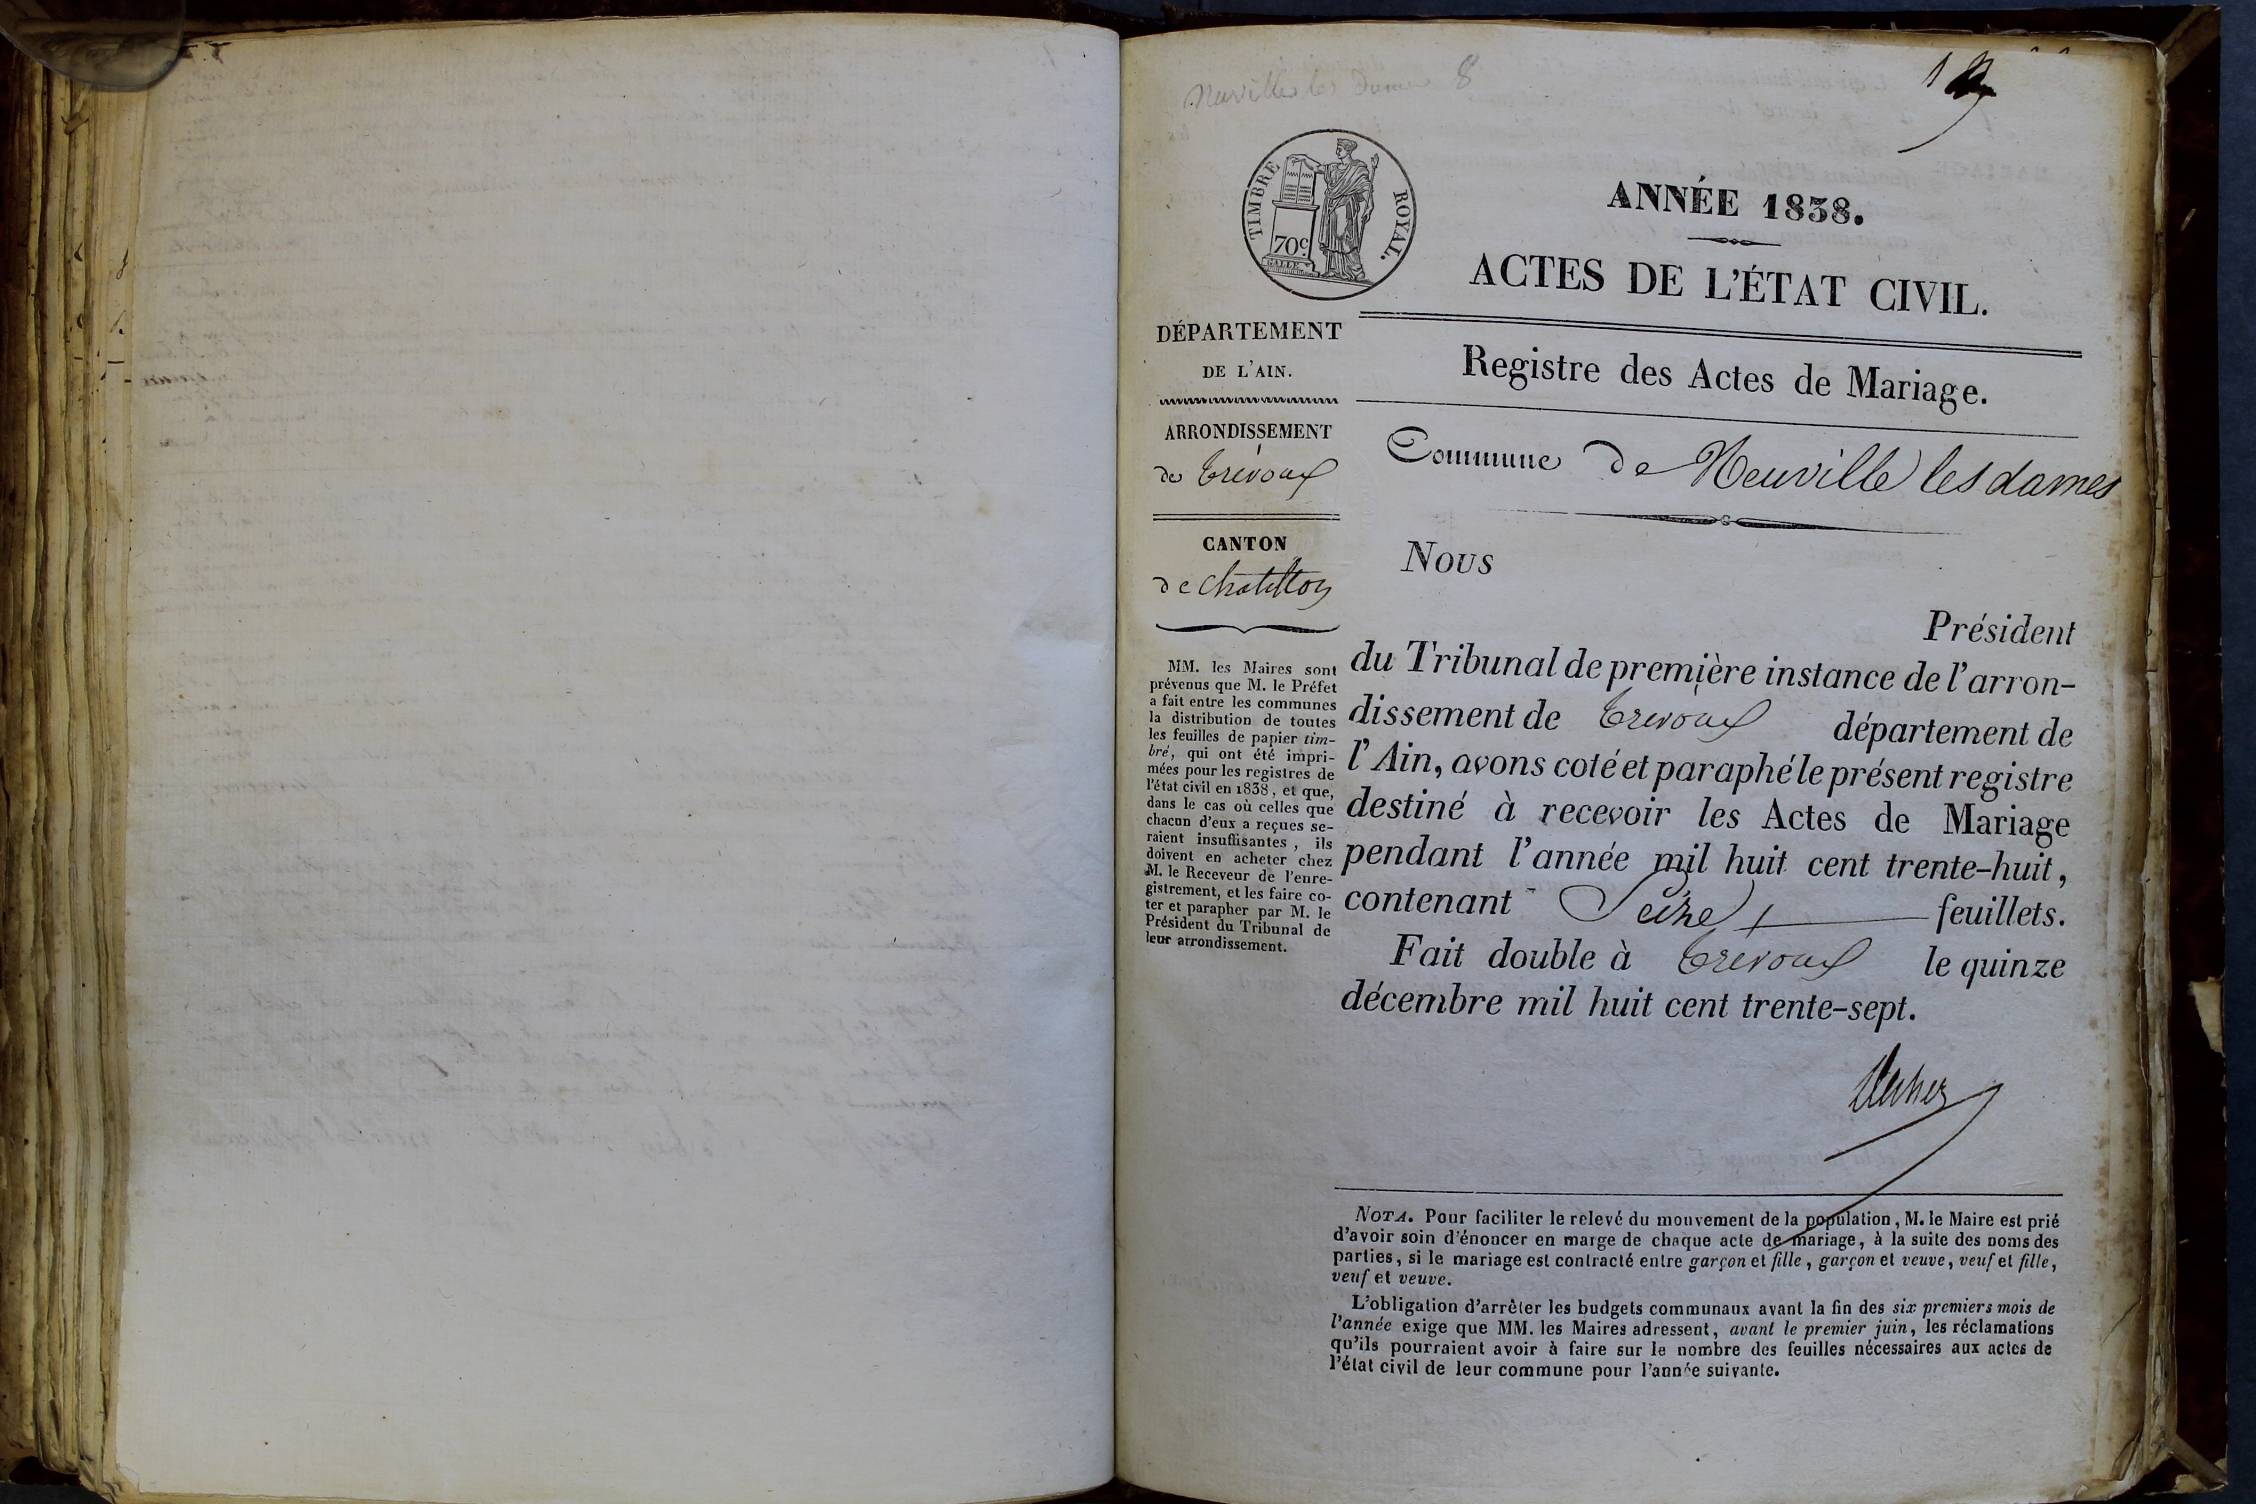 Neuville les Dames 8
1
TIMBRE ROYAL.
70c
GALLE
ANNÉE 1838.
ACTES DE L'ÉTAT CIVIL.
DÉPARTEMENT
DE L'AIN.
ARRONDISSEMENT
de Trévoux
CANTON
de Chatillon
MM. les Maires sont
prévenus que M. le Préfet
a fait entre les communes
la distribution de toutes
les feuilles de papier tim-
bré, qui ont été impri-
mées pour les registres de
l'état civil en 1838, et que,
dans le cas où celles que
chacun d'eux a reçues se-
raient insuffisantes, ils
doivent en acheter chez
M. le Receveur de l'enre-
gistrement, et les faire co-
ter et parapher par M. le
Président du Tribunal de
leur arrondissement.
Registre des Actes de Mariage.
Commune de Neuville les dames
Nous
Président
du Tribunal de première instance de l'arron-
dissement de Trevoux département de
l'Ain, avons coté et paraphé le présent registre
destiné à recevoir les Actes de Mariage
pendant l'année mil huit cent trente-huit,
contenant Seize feuillets.
Fait double à Trévoux le quinze
décembre mil huit cent trente-sept.
NOTA. Pour faciliter le relevé du mouvement de la population, M. le Maire est prié
d'avoir soin d'énoncer en marge de chaque acte de mariage, à la suite des noms des
parties, si le mariage est contracté entre garçon et fille, garçon et veuve, veuf et fille,
veuf et veuve.
L'obligation d'arrêter les budgets communaux avant la fin des six premiers mois de
l'année exige que MM. les Maires adressent, avant le premier juin, les réclamations
qu'ils pourraient avoir à faire sur le nombre des feuilles nécessaires aux actes de
l'état civil de leur commune pour l'année suivante.